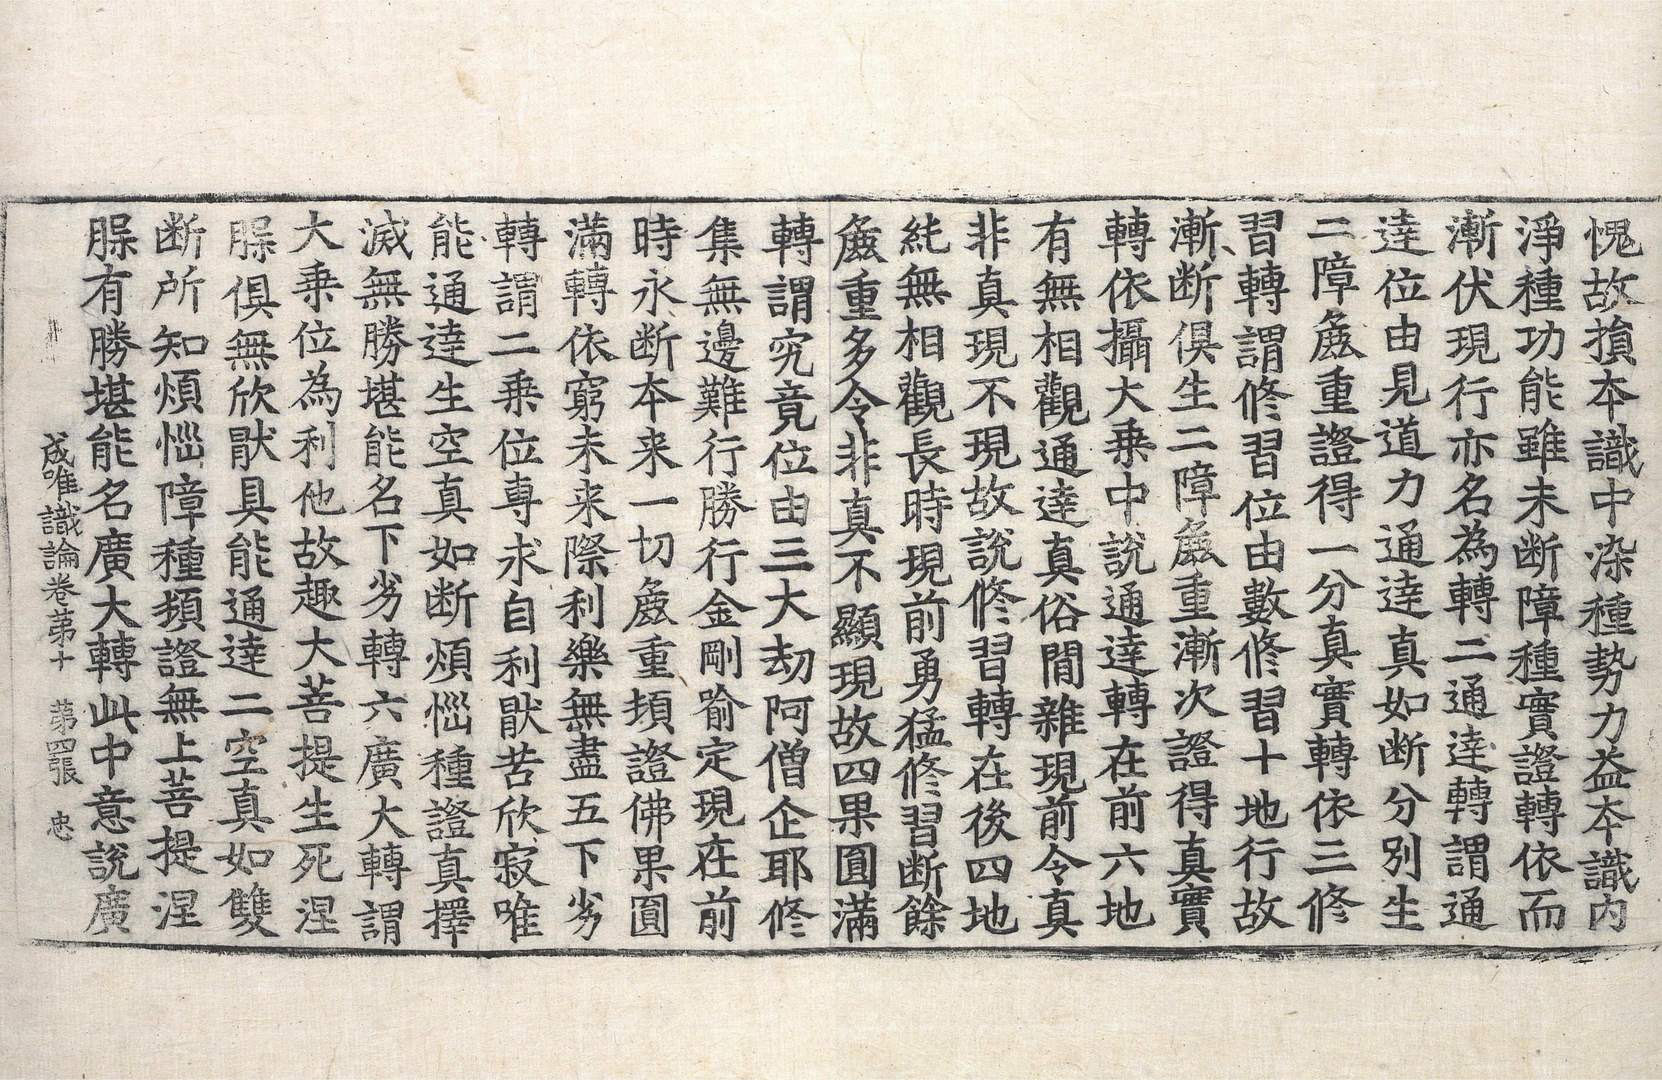 愧故損本識中染種勢力益本識內
淨種功能雖未断障種實證轉依而
漸伏現行亦名為轉二通達轉謂通
達位由見道力通達真如断分別生
二障麁重證得一分真實轉依三修
習轉謂修習位由數修習十地行故
漸断俱生二障麁重漸次證得真實
轉依攝大乗中說通達轉在前六地
有無相觀通達真俗閒雜現前令真
非真現不現故說修習轉在後四地
純無相觀長時現前勇猛修習断餘
麁重多令非真不顯現故四果圓滿
轉謂究竟位由三大劫阿僧企耶修
集無邊難行勝行金剛喻定現在前
時永断本来一切麁重頓證佛果圓
滿轉依窮未来際利樂無盡五下劣
轉謂二乗位專求自利猒苦欣寂唯
能通達生空真如断煩惱種證真擇
滅無勝堪能名下劣轉六廣大轉謂
大乗位為利他故趣大菩提生死涅
腂俱無欣猒具能通達二空真如雙
断所知煩惱障種頓證無上菩提涅
腂有勝堪能名廣大轉此中意說廣
成唯識論卷苐十　苐四張　忠